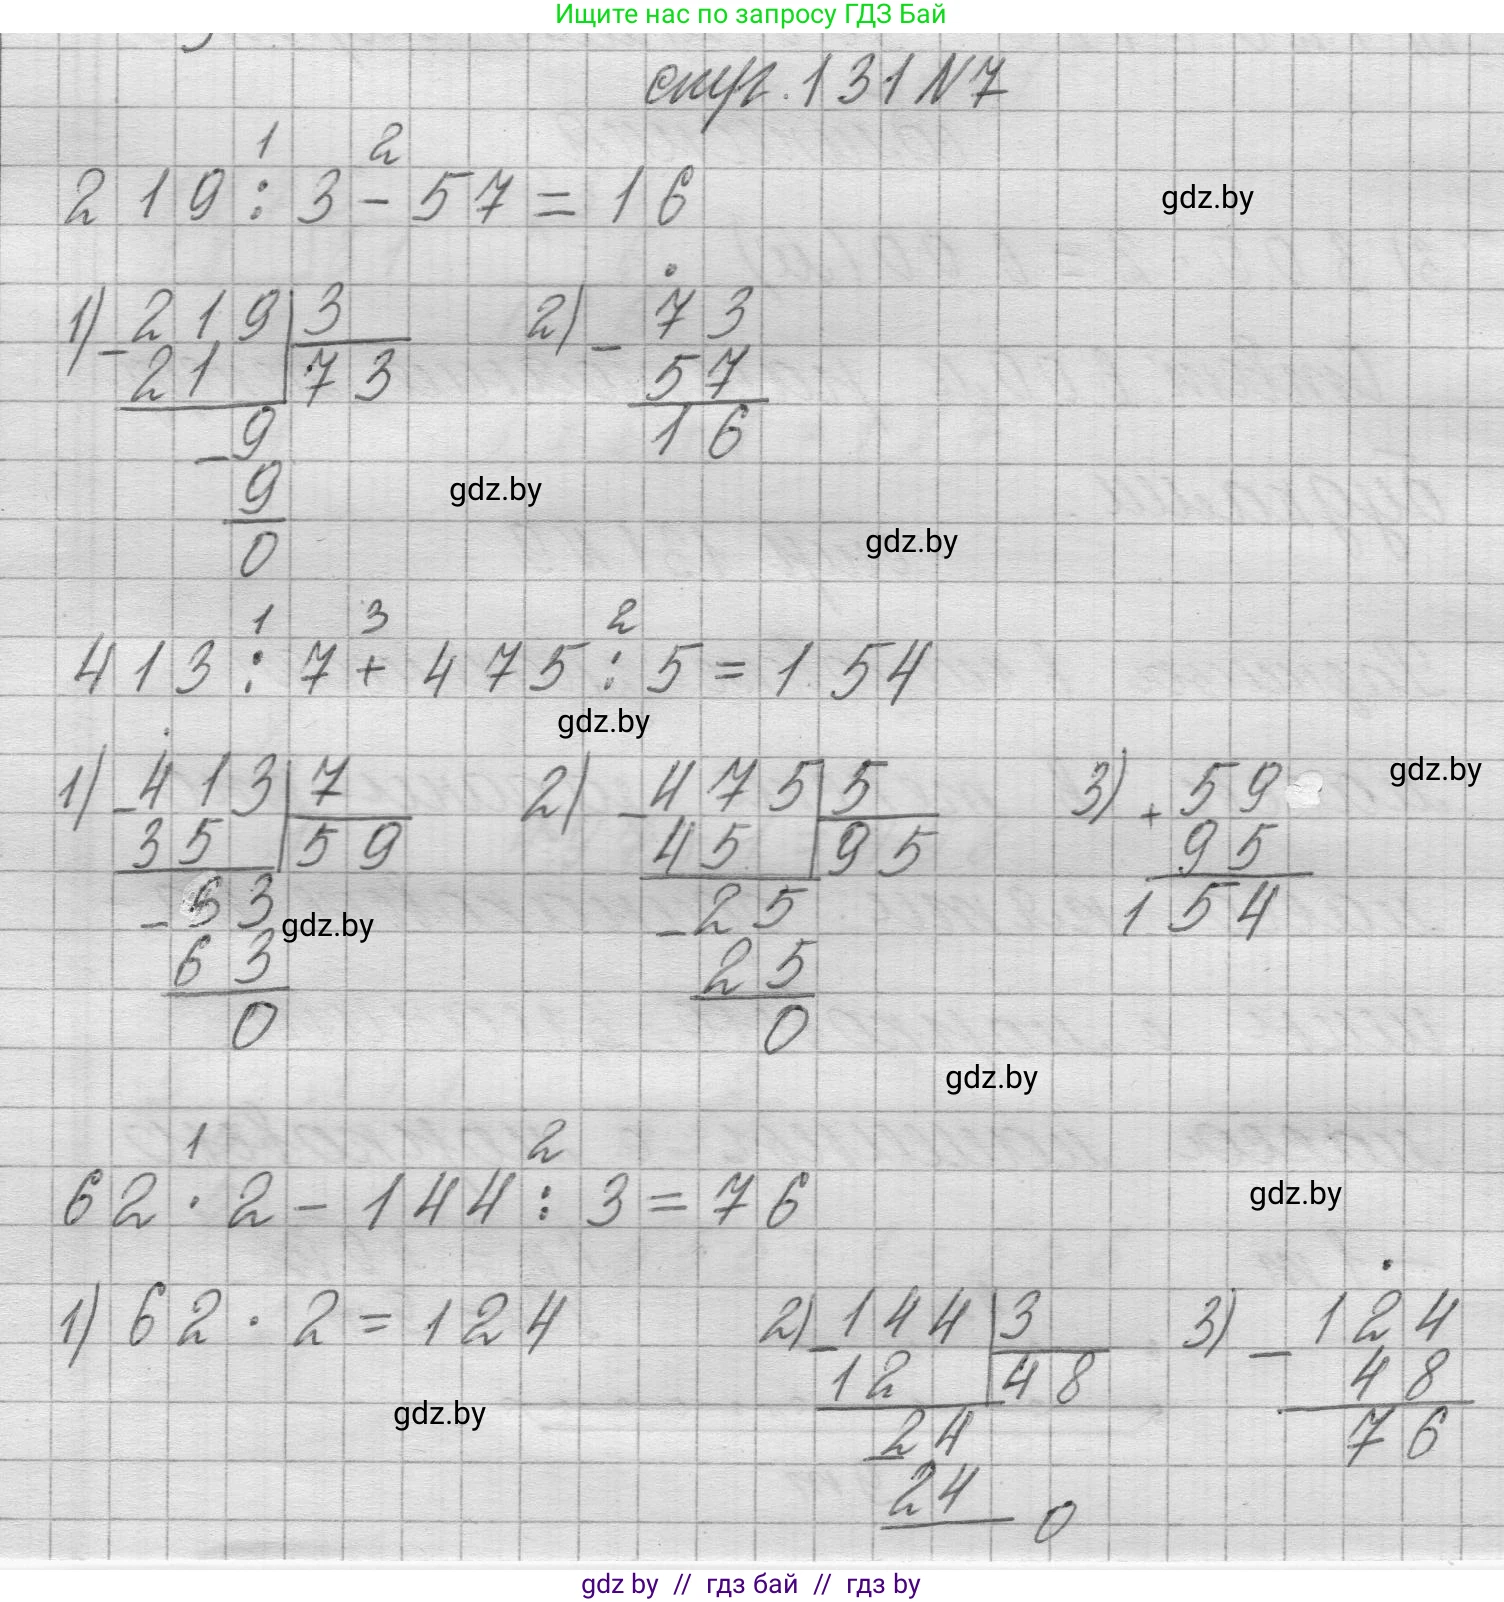 Ищите нас по запросу ГДЗ Бай
стр. 131 N 7
1 2
219 : 3 - 57 = 16
gdz.by
1) - 219 | 3 2) - 73
21 73 57
- 9 16
9
gdz.by
0
gdz.by
1 3 2
413 : 7 + 475 : 5 = 154
gdz.by
1) - 413 | 7 2) - 475 | 5 3) + 59
gdz.by
35 59 45 95 95
- 53 - 25 154
gdz.by
63 25
0 0
gdz.by
1 2
62 · 2 - 144 : 3 = 76
gdz.by
1) 62 · 2 = 124 2) - 144 | 3 3) - 124
12 48 48
gdz.by
24 76
24
0
gdz by // гдз бай // гдз by